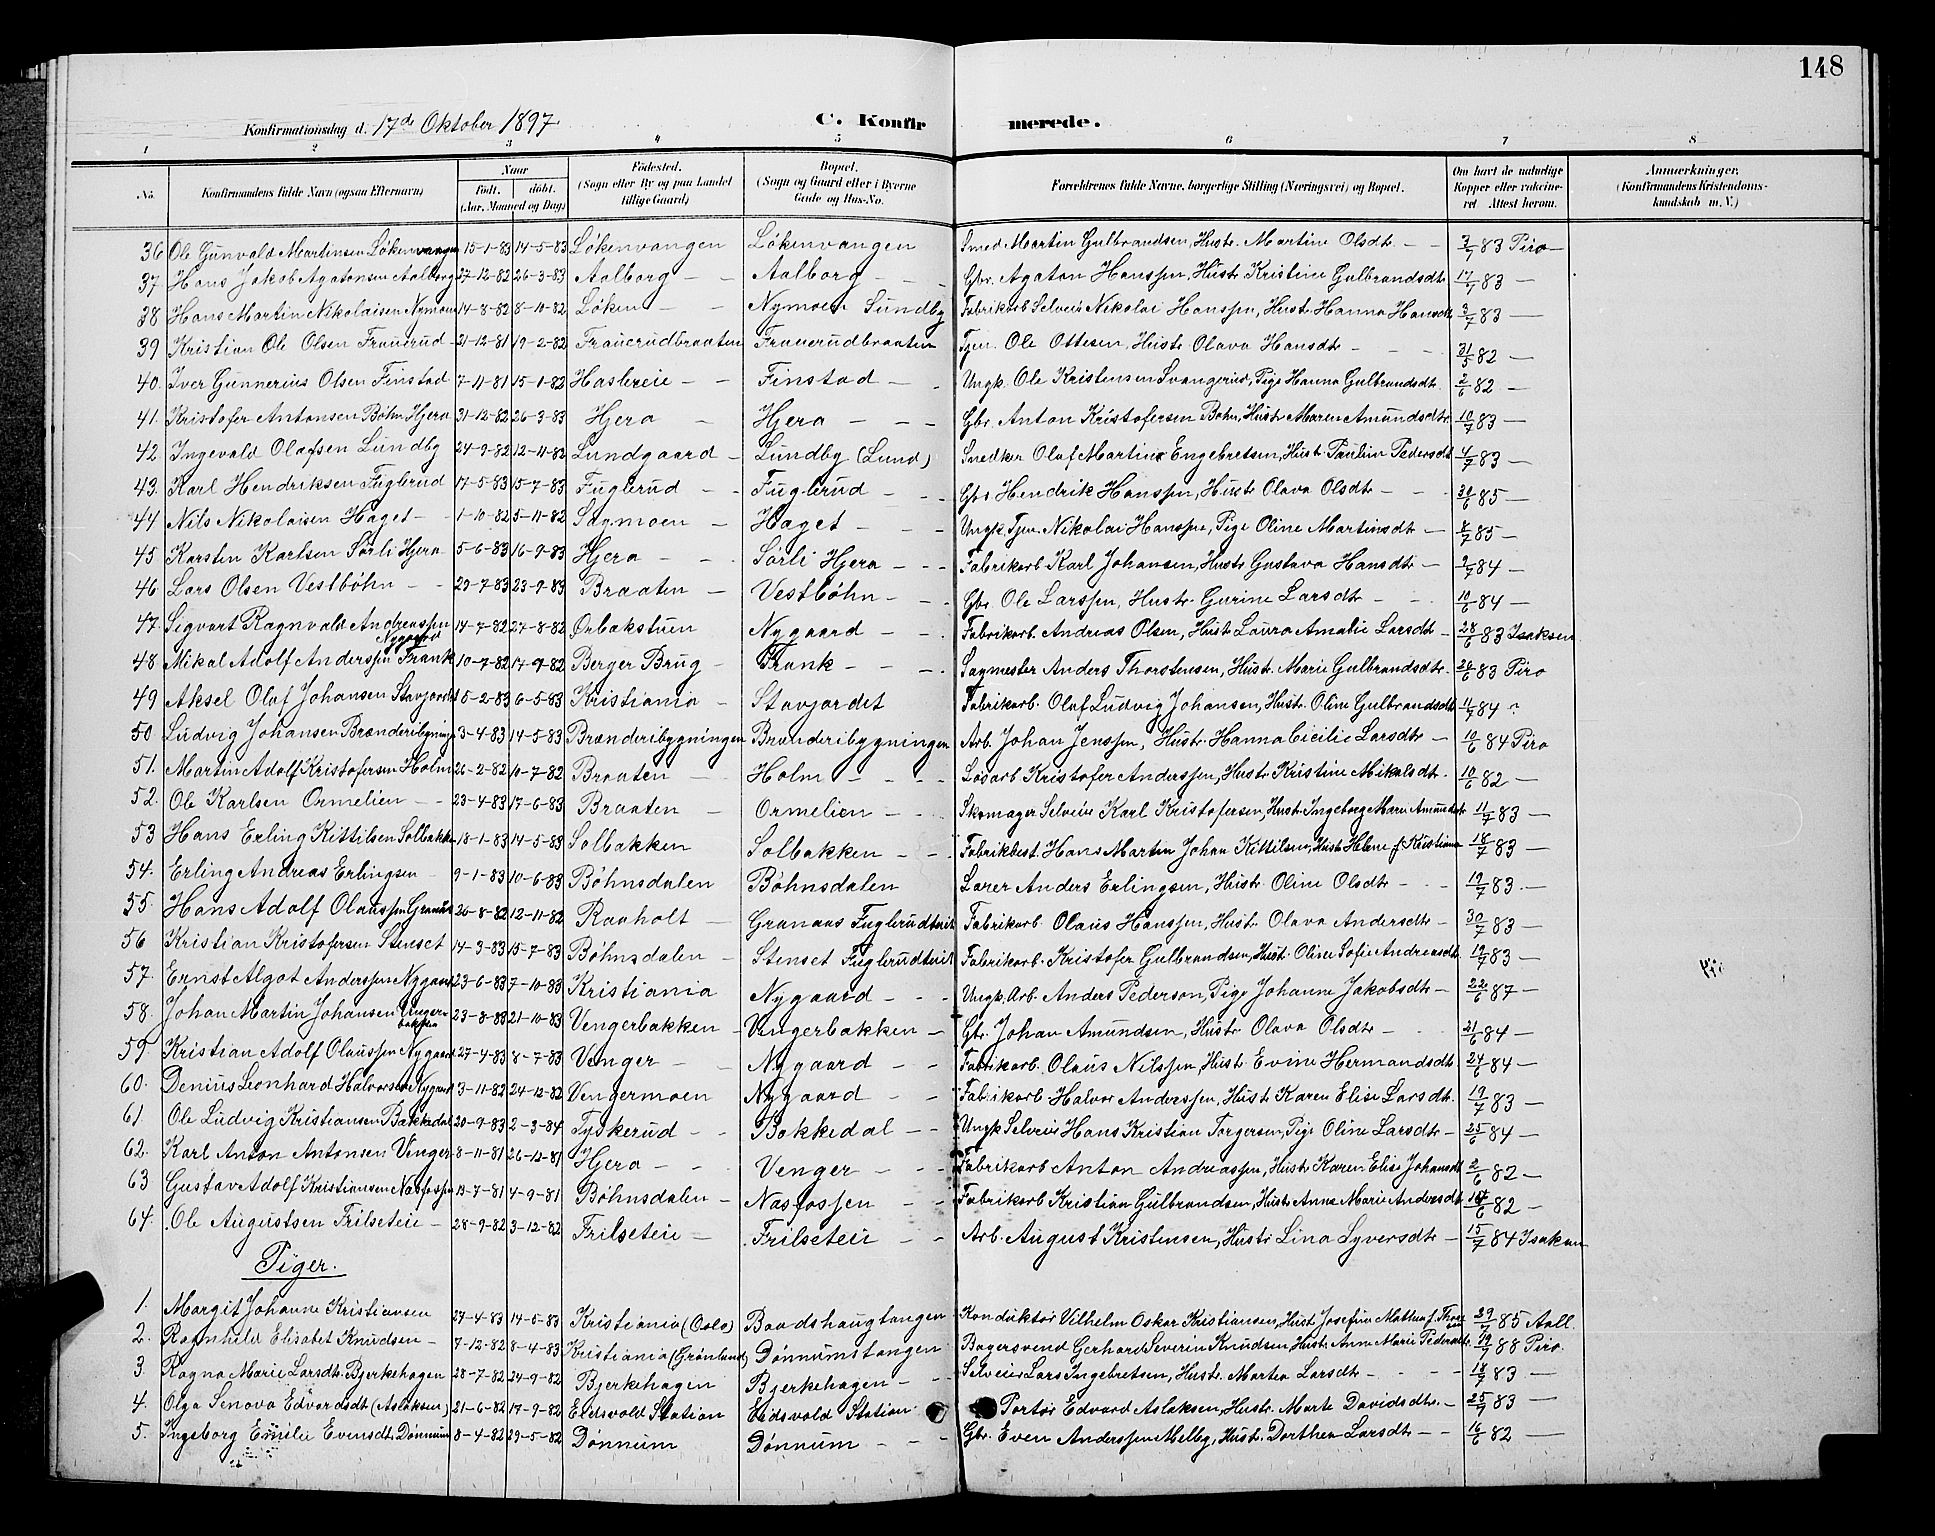 148
Konfirmationsdag d. 17de Oktober 1897 C. Konfirmerede.
1 2 3 4 5 6 7 8
No. Konfirmandens fulde Navn (ogsaa Efternavn) Naar født. døbt. (Aar, Maaned og Dag) Fødested. (Sogn eller By og paa Landet tillige Gaard) Bopæl. (Sogn og Gaard eller i Byerne Gade og Hus-No. Forældrenes fulde Navne, borgerlige Stilling (Næringsvei) og Bopæl. Om havt de naturlige Kopper eller vaccineret. Attest herom. Anmerkninger. (Konfirmandens Kristendomskundskab m. V.)
36 Ole Gunvald Martinsen Løkenvangen 15-1-83 14-5-83 Løkenvangen Løkenvangen Smed Martin Gulbrandsen, Hustr. Martine Olsdtr 3/7 83 Piro
37 Hans Jakob Agatonsen Aalborg 27-12-82 26-3-83 Aalborg Aalborg Gbr. Agaton Hanssen, Hustr Kristine Gulbrandsdtr 17/7 83
38 Hans Martin Nikolaisen Nymoen 14-8-82 8-10-82 Løken Nymoen Sundby Fabrikarb Selveier Nikolai Hanssen, Hustr Hanna Hansdtr 3/7 83
39 Kristian Ole Olsen Frauerud 21-12-81 19-2-82 Frauerudbraaten Frauerudbraaten Tjen. Ole Ottesen, Hustr Olava Hansdtr 31/5 82
40. Iver Gunnerius Olsen Finstad 7-11-81 15-1-82 Haslereie Finstad Ungk. Ole Kristensen Svangerud, Pige Hanna Gulbrandsdtr 2/6 82
41. Kristofer Antonsen Bøhn Hjera 31-12-82 26-3-83 Hjera Hjera Gbr. Anton Kristofersen Bøhn, Hustr Maren Amundsdtr 10/7 83
42 Ingevald Olafsen Lundby 24-9-82 12-11-82 Lundgaard Lundby (Lund) Snedker Olaf Martin Engebretsen, Hustr Pauline Pedersdtr 4/7 83
43. Karl Hendriksen Fuglerud 17-5-83 15-7-83 Fuglerud Fuglerud Gbr Hendrik Hanssen, Hustr Olava Olsdtr 30/6 85
44 Nils Nikolaisen Haget 1-10-82 5-11-82 Sagmoen Haget Ungk. Tjen. Nikolai Hanssen, Pige Oline Martinsdtr 8/7 85
45 Karsten Karlsen Sørli Hjera 5-6-83 16-9-83 Hjera Sørli Hjera Fabrikarb Karl Johansen, Hustr Gustava Hansdtr 9/7 84
46 Lars Olsen Vestbøhn 29-7-83 23-9-83 Braaten Vestbøhn Gbr. Ole Larssen, Hustr Gurine Larsdtr 10/6 84
47. Sigvart Ragnvald Andreassen Nygaard 14-7-82 27-8-82 Ørbækstuen Nygaard Fabrikarb. Andreas Olsen, Hustr Laura Amalie Larsdtr 28/6 83 Isaksen
48 Mikal Adolf Anderssen Frank 10-7-82 17-9-82 Berger Brug Frank Sagmester Anders Thorstensen, Hustr. Marie Gulbrandsdtr. 26/6 83 Piro
49 Aksel Olaf Johansen Stavjordet 15-2-83 6-5-83 Kristiania Stavjordet Fabrikarb. Olaf Ludvig Johansen, Hustr. Oline Gulbrandsdtr 11/7 84 ?
50 Ludvig Johansen Brænderibygningen 3-4-83 14-5-83 Brænderibygningen Brænderibygningen Arb. Johan Jenssen, Hustr Hanna Cicilie Larsdtr 10/6 84 Piro
51. Martin Adolf Kristofersen Holm 26-2-82 10-7-82 Braaten Holm Løsarb Kristofer Anderssen, Hustr Kristine Mikalsdtr. 10/6 82
52. Ole Karlsen Ormelien 23-4-83 17-6-83 Braaten Ormelien Skomager Selveier Karl Kristofersen, Hustr Ingeborg Marie Amundsdtr 11/7 83
53 Hans Erling Kittilsen Solbakken 18-1-83 14-5-83 Solbakken Solbakken Fabrikbest. Hans Martin Johan Kittilsen, Hustr Helene f. Kristians 18/7 83
54. Erling Andreas Erlingsen 9-1-83 10-6-83 Bøhnsdalen Bøhnsdalen Lærer Anders Erlingsen, Hustr Oline Olsdtr 19/7 83
55. Hans Adolf Olaussen Granaas 26-8-82 12-11-82 Raaholt Granaas Fuglerudteiet Fabrikarb. Olaus Hanssen, Hustr Olava Andersdtr 30/7 83
56 Kristian Kristofersen Stenset 14-3-83 15-7-83 Bøhnsdalen Stenset Fuglerudteiet Fabrikarb. Kristofer Gulbrandsen, Hustr Oline Sofie Andreasdtr 19/7 83
57. Ernst Algot Anderssen Nygaard 23-6-83 7-10-83 Kristiania Nygaard Ungk. Arb. Anders Pederson, Pige Johanne Jakobsdtr 22/6 87
58. Johan Martin Johansen Vengerbakken 23-8-83 21-10-83 Vengerbakken Vengerbakken Gbr. Johan Amundsen, Hustr. Olava Olsdtr 21/6 84
59. Kristian Adolf Olaussen Nygaard 27-4-83 8-7-83 Venger Nygaard Fabrikarb. Olaus Nilssen, Hustr Evine Hermandsdtr 24/6 84
60. Denius Leonhard Halvorsen Nygaard 3-11-82 24-12-82 Vengermoen Nygaard Fabrikarb Halvor Anderssen, Hustr Karen Elise Larsdtr. 19/7 83
61. Ole Ludvig Kristiansen Bakkedal 20-9-83 2-3-84 Tyskerud Bakkedal Ungk Selveier Hans Kristian Torgersen, Pige Oline Larsdtr 25/6 84
62. Karl Anton Antonsen Venger 8-11-81 26-12-81 Hjera Venger Fabrikarb Anton Andreassen, Hustr Karen Elise Johansdtr 2/6 82
63 Gustav Adolf Kristiansen Nasfossen 19-7-81 4-9-81 Bøhnsdalen Nasfossen Fabrikarb Kristian Gulbrandsen, Hustr Anne Marie Andersdtr 16/6 82
64. Ole Augustsen Frilseteie 28-9-82 3-12-82 Frilseteie Frilseteie Arb. August Kristensen, Hustr Lina Syversdtr 15/7 84 Isaksen
Piger.
1. Margit Johanne Kristiansen 27-4-83 14-5-83 Kristiania (Oslo) Baadshaugtangen Konduktør Vilhelm Oskar Kristiansen, Hust Josefine Mathea f. 29/7 85 Aall.
2. Ragnhild Elisabet Knudsen 7-12-82 8-4-83 Kristiania (Grønland) Dønnumstangen Bagersvend Gerhard Severin Knudsen Hustr. Anne Marie Pedersdtr. 19/9 88 Piro.
3. Ragna Marie Larsdtr. Bjerkehagen 28-7-82 24-9-82 Bjerkehagen Bjerkehagen Selveier Lars Ingebretsen, Hustr. Martea Larsdtr 18/7 83
4. Olga Senova Edvardsdtr (Aslaksen) 21-6-82 17-9-82 Eidsvold Station Eidsvold Station Portør Edvard Aslaksen, Hustr. Marte Davidsdtr. 25/7 83
5. Ingeborg Emilie Evensdtr Dønnum 8-4-82 29-5-82 Dønnum Dønnum Gbr. Even Anderssen Melby, Hustr. Dorthea Larsdtr 16/6 82